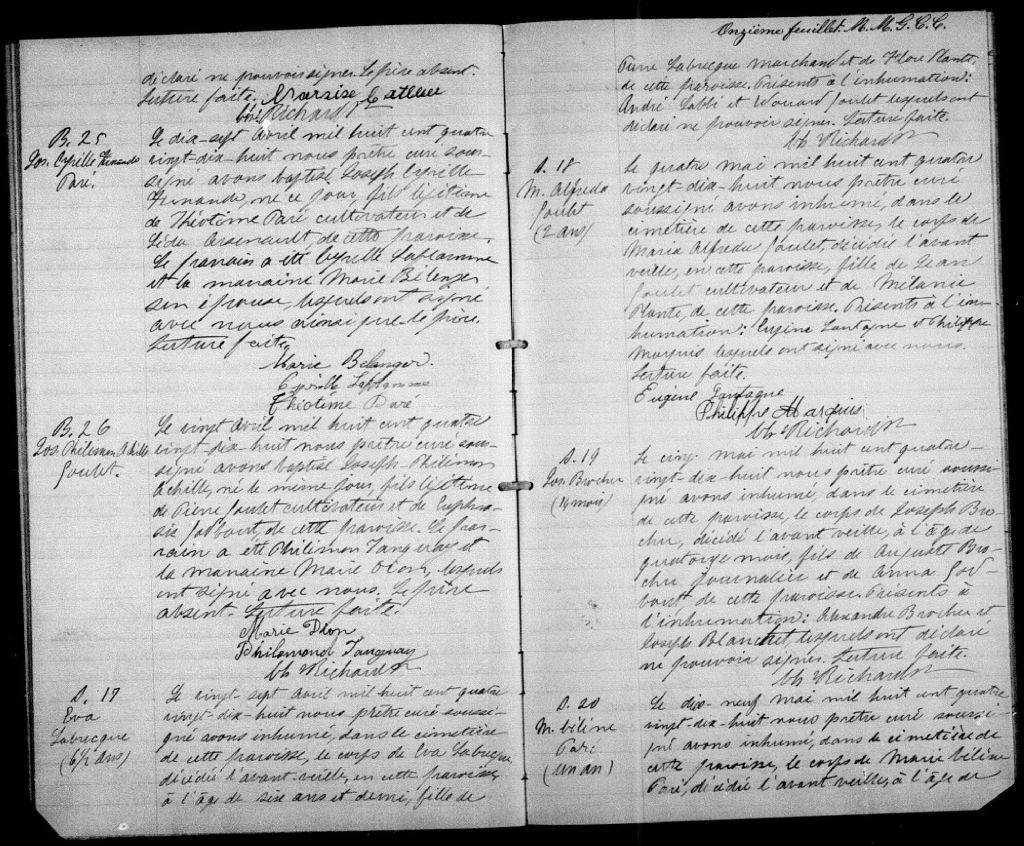 déclaré ne pouvoir signer. Le père absent.
Lecture faite.
Chs Richard Ptr
B. 25
Jos. Cyrille Fernando
Paré.
Le dix-sept Avril mil huit cent quatre
vingt-dix-huit nous prêtre curé sous-
signé avons baptisé Joseph Cyrille
Fernando, né ce jour, fils légitime
de Théotime Paré cultivateur et de
Léda Arsenault, de cette paroisse.
Le parrain a été Cyrille Laflamme
et la marraine Marie Bélanger
son épouse, lesquels ont signé
avec nous ainsi que le père.
Lecture faite.
Marie Belanger.
Cyrille Laflamme
Théotime Paré
B. 26
Jos. Philémon Achille
Goulet.
Le vingt Avril mil huit cent quatre
vingt-dix-huit nous prêtre curé sous-
signé avons baptisé Joseph-Philémon
Achille, né le même jour, fils légitime
de Pierre Goulet cultivateur et de Euphro-
sie Gobbout, de cette paroisse. Le par-
rain a été Philémon Tanguay et
la marraine Marie Dion, lesquels
ont signé avec nous. Le père
absent. Lecture faite.
Marie Dion
Philemond Tanguay
Chs Richard Ptr
S. 17
Eva
Labrecque
(6½ ans)
Le vingt sept Avril mil huit cent quatre
vingt-dix-huit nous prêtre curé soussi-
gné avons inhumé, dans le cimetière
de cette paroisse, le corps de Eva Labrecque,
décédée l'avant veille, en cette paroisse,
à l'âge de six ans et demi, fille de
Onzième feuillet. M. M. G. C. C.
Pierre Labrecque marchand et de Flore Plante,
de cette paroisse. Présents à l'inhumation:
André Labbé et Édouard Goulet lesquels ont
déclaré ne pouvoir signer. Lecture faite.
Chs Richard Ptr
S. 18
M. Alfreda
Goulet
(2 ans)
Le quatre mai mil huit cent quatre
vingt-dix-huit nous prêtre curé
soussigné avons inhumé, dans le
cimetière de cette paroisse, le corps de
Maria Alfreda Goulet, décédée l'avant
veille, en cette paroisse, fille de Jean
Goulet cultivateur et de Mélanie
Plante, de cette paroisse. Présents à l'in-
humation: Eugène Lantagne et Philippe
Marquis lesquels ont signé avec nous.
Lecture faite.
Eugène Lantagne
Philippe Marquis
Chs Richard Ptr
S. 19
Jos. Brochu
(14 mois)
Le cinq mai mil huit cent quatre-
vingt-dix-huit nous prêtre curé soussi-
gné avons inhumé, dans le cimetière
de cette paroisse, le corps de Joseph Bro-
chu, décédé l'avant veille, à l'âge de
quatorze mois, fils de Auguste Bro-
chu journalier et de Anna God-
bout, de cette paroisse. Présents à
l'inhumation: Alexandre Brochu et
Joseph Blanchet lesquels ont déclaré
ne pouvoir signer. Lecture faite.
Chs Richard Ptr
S. 20
M. Céline
Paré
(un an)
Le dix-neuf mai mil huit cent quatre
vingt-dix-huit nous prêtre curé soussi-
gné avons inhumé, dans le cimetière de
cette paroisse, le corps de Marie Céline
Paré, décédée l'avant veille, à l'âge de